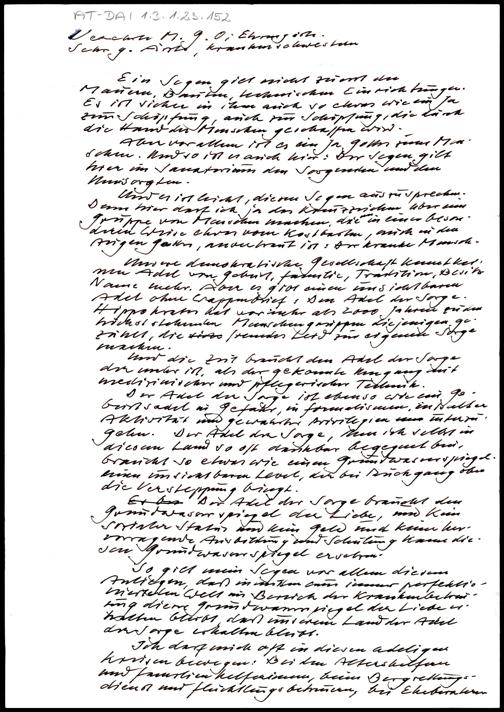 AT-DAI 1.3.1.23.152
Verehrte M. g. D. i Ehrengäste.
Sehr g. Ärzte, Krankenschwestern
Ein Segen gilt nicht zuerst den
Mauern, Bauten, technischen Einrichtungen.
Es ist sicher in ihm auch so etwas wie ein Ja
zur Schöpfung, auch zur Schöpfung, die durch
die Hand des Menschen geschaffen wird.
Aber vor allem ist es ein Ja Gottes zum Men-
schen. Und so ist es auch hier: Der Segen gilt
hier im Sanatorium den Sorgenden und den
Umsorgten.
Und es ist leicht, diesen Segen auszusprechen.
Denn hier darf ich ja das Kreuzzeichen über eine
Gruppe von Menschen machen, die in einer beson-
deren Weise etwas vom Kostbarsten, auch in den
Augen Gottes, anvertraut ist: Der kranke Mensch.
Unsere demokratische Gesellschaft kennt kei-
nen Adel von Geburt, Familie, Tradition, Besitz
Name mehr. Aber es gibt einen unsichtbaren
Adel ohne Wappenbrief: Den Adel der Sorge.
Hippokrates hat vor mehr als 2000 Jahren zu den
höchststehenden Menschengruppen diejenigen ge-
zählt, die fremdes Leid zur eigenen Sorge
machen.
Und die Zeit braucht den Adel der Sorge
der mehr ist, als der gekonnte Umgang mit
medizinischer und pflegerischer Technik.
Der Adel der Sorge ist ebenso wie ein Ge-
burtsadel in Gefahr, in Formalismus,
Aktivität und gewahrten Privilegien unterzu-
gehen. Der Adel der Sorge, dem ich selbst in
diesem Land so oft dankbar begegnet bin,
braucht so etwas wie einen Grundwasserspiegel.
einen unsichtbaren Level, der bei Rückgang aber
die Versteppung bringt.
Der Adel der Sorge braucht den
Grundwasserspiegel der Liebe, und kein
sozialer Status und kein Geld und keine her-
vorragende Ausbildung und Schulung kann die-
sen Grundwasserspiegel ersetzen.
So gilt mein Segen vor allem diesem
Anliegen, daß in unserer immer perfektio-
nierteren Welt im Bereich der Krankenbetreu-
ung dieser Grundwasserspiegel der Liebe er-
halten bleibt, daß unserem Land der Adel
der Sorge erhalten bleibt.
Ich darf mich oft in diesen adeligen
Kreisen bewegen: Bei den Altershelfern
und Familienhelferinnen, beim Bergrettungs-
dienst und Flüchtlingsbetreuern, bei Eheberatern